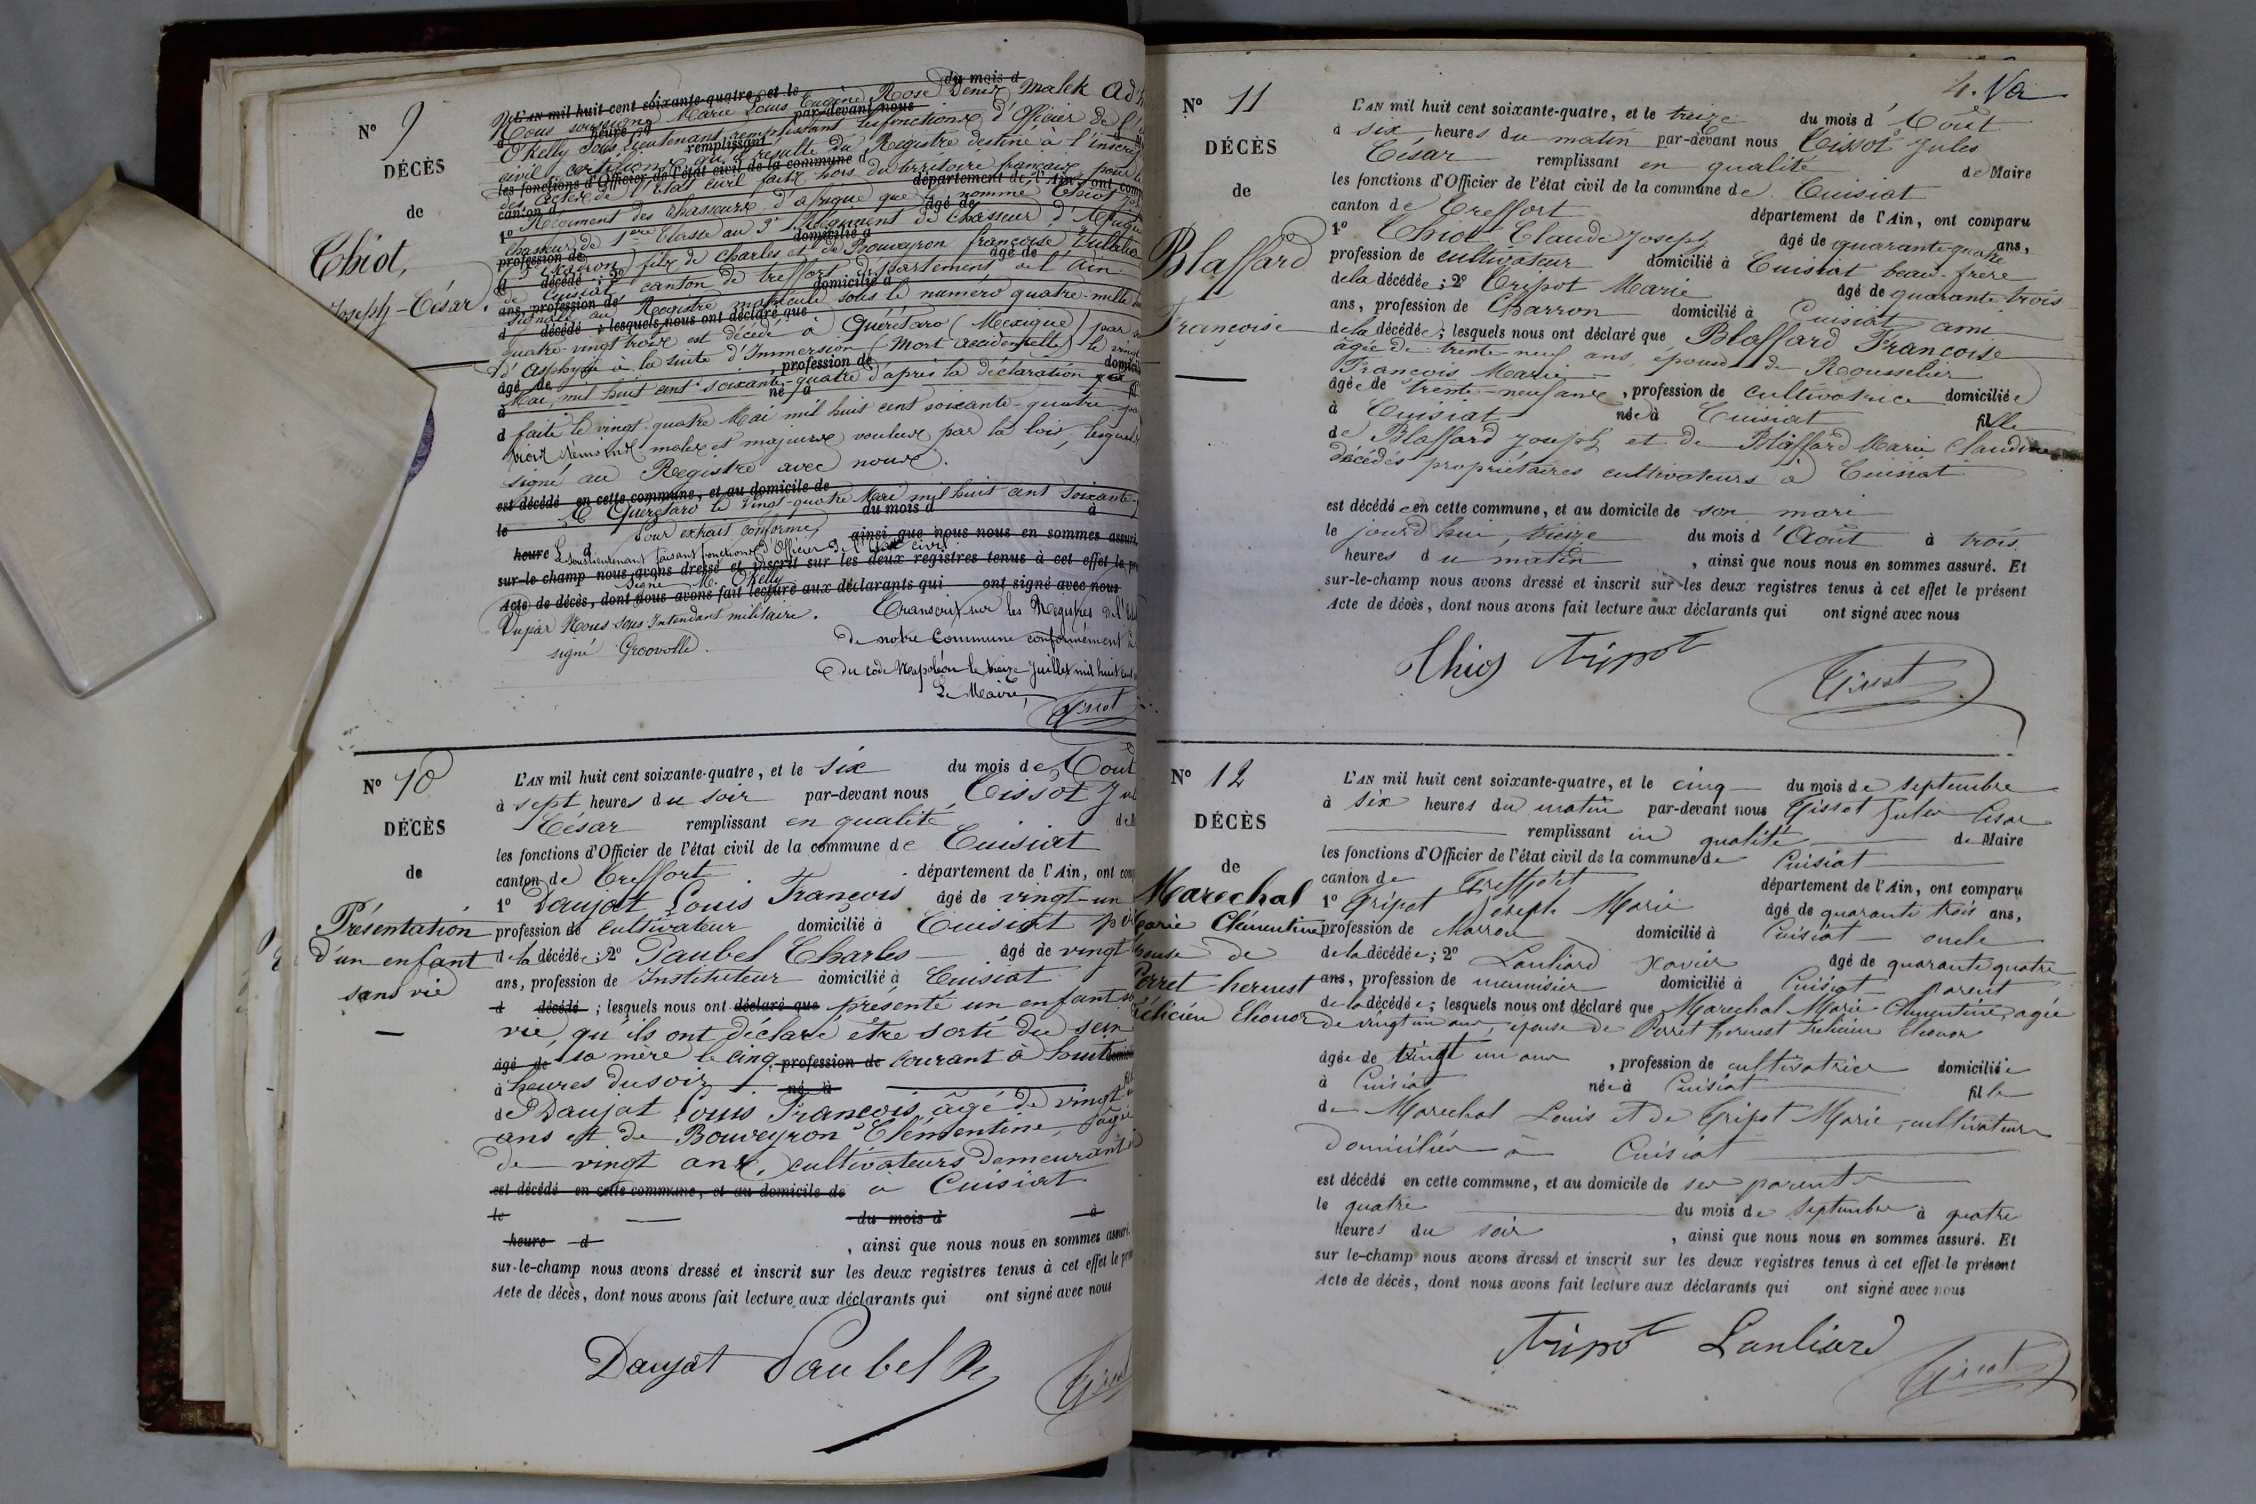 Nº 9
DÉCÈS
de
Chiot,
Joseph-César.
L'AN mil huit cent soixante-quatre, et le du mois d
Nous soussigné Marie Louis Eugène Rose Denis Malek
par-devant nous
O'Kelly Sous Lieutenant remplissant les fonctions d'Officier de l'
remplissant
civil, certifions qu'il résulte du Registre destiné à l'inscrip
les fonctions d'Officier de l'état civil de la commune d
des actes de l'Etat civil faits hors du territoire français pour le
canton d département de l'Ain, ont com
Régiment des Chasseurs d'afrique que le nommé Chiot
1º âgé de
Chasseur de 1ère Classe au 3e Régiment de Chasseur d'Afrique
profession de domicilié à
fils de Charles et de Bouveyron françoise
d décédé ; 2º âgé de
de Cuisiat canton de treffort département de l'Ain
ans, profession de domicilié à
signalé au Registre matricule sous le numéro quatre-mille
d décédé ; lesquels nous ont déclaré que
quatre-vingt trois est décédé à Quérétaro (Mexique) par
d'Asphyxie à la suite d'Immersion (Mort accidentelle) le vingt
âgé de , profession de domicilié
Mai mil huit cent soixante-quatre d'après la déclaration
à né à fil
d faite le vingt-quatre Mai mil huit cent soixante-quatre
trois témoins mâles et majeurs voulus par la loi, lesquels
signé au Registre avec nous.
est décédé en cette commune, et au domicile de
A Quérétaro le vingt-quatre Mai mil huit cent soixante-
le du mois d à
Pour extrait conforme,
heure d , ainsi que nous nous en sommes assuré.
Le Sous lieutenant faisant fonctions d'Officier de l'Etat civil
sur-le-champ nous avons dressé et inscrit sur les deux registres tenus à cet effet le pré
signé M. O'Kelly
Acte de décès, dont nous avons fait lecture aux déclarants qui ont signé avec nous
Vu par Nous Sous Intendant militaire.
signé
Transcrit sur les Registres de l'Etat
de notre Commune conformément à
du code Napoléon le treize juillet mil huit cent
Le Maire,
Tissot
Nº 10
DÉCÈS
de
Présentation
d'un enfant
sans vie
L'AN mil huit cent soixante-quatre, et le six du mois de Aout
à sept heures du soir par-devant nous Tissot Jul
César remplissant en qualité de M
les fonctions d'Officier de l'état civil de la commune de Cuisiat
canton de Treffort département de l'Ain, ont com
1º Daujat Louis François âgé de vingt-un
profession de cultivateur domicilié à Cuisiat pè
de la décédé ; 2º Paubel Charles âgé de vingt
ans, profession de Instituteur domicilié à Cuisiat
d décédé ; lesquels nous ont déclaré que présenté un enfant
vie, qu'ils ont déclaré être sorti du sein
âgé de sa mère le cinq profession de courant à huit
à heures du soir né à
de Daujat Louis François, âgé de vingt
ans et de Bouveyron Clémentine, âgée
de vingt ans, cultivateurs demeurant
est décédé en cette commune, et au domicile de à Cuisiat
le du mois d à
heure d , ainsi que nous nous en sommes assuré.
sur-le-champ nous avons dressé et inscrit sur les deux registres tenus à cet effet le pré
Acte de décès, dont nous avons fait lecture aux déclarants qui ont signé avec nous
Daujat Paubel Ch
Tissot
4.
Nº 11
DÉCÈS
de
Blaffard
Françoise
L'AN mil huit cent soixante-quatre, et le treize du mois d'Août
à six heures du matin par-devant nous Tissot Jules
César remplissant en qualité de Maire
les fonctions d'Officier de l'état civil de la commune de Cuisiat
canton de Treffort département de l'Ain, ont comparu
1º Chiot Claude Joseph âgé de quarante-quatre ans,
profession de cultivateur domicilié à Cuisiat beau-frère
de la décédée ; 2º Tripot Marie âgé de quarante-trois
ans, profession de Charron domicilié à Cuisiat ami
de la décédée ; lesquels nous ont déclaré que Blaffard Françoise
âgée de trente-neuf ans, épouse de Rousselier
François Marie
âgée de trente-neuf ans, profession de cultivatrice domiciliée
à Cuisiat née à Cuisiat fille
de Blaffard Joseph et de Blaffard Marie Claudine
décédés propriétaires cultivateurs à Cuisiat
est décédée en cette commune, et au domicile de son mari
le jourd'hui, treize du mois d'Août à trois
heures du matin , ainsi que nous nous en sommes assuré. Et
sur-le-champ nous avons dressé et inscrit sur les deux registres tenus à cet effet le présent
Acte de décès, dont nous avons fait lecture aux déclarants qui ont signé avec nous
Chiot Tripot
Tissot
Nº 12
DÉCÈS
de
Marechal
Marie Clémentine
épouse de
Perret-hernest
Félicien Eléonor
L'AN mil huit cent soixante-quatre, et le cinq du mois de septembre
à six heures du matin par-devant nous Tissot Jules César
remplissant en qualité de Maire
les fonctions d'Officier de l'état civil de la commune de Cuisiat
canton de Treffort département de l'Ain, ont comparu
1º Tripot Joseph Marie âgé de quarante trois ans,
profession de charron domicilié à Cuisiat oncle
de la décédée ; 2º Lanliard Xavier âgé de quarante quatre
ans, profession de menuisier domicilié à Cuisiat parent
de la décédée ; lesquels nous ont déclaré que Marechal Marie Clémentine, agée
de vingt un ans, epouse de Perret hernest Felicien Eleonor
âgée de vingt un ans , profession de cultivatrice domiciliée
à Cuisiat née à Cuisiat fille
de Marechal Louis et de Tripot Marie, cultivateurs
domiciliés à Cuisiat
est décédé en cette commune, et au domicile de ses parents
le quatre du mois de Septembre à quatre
heures du soir , ainsi que nous nous en sommes assuré. Et
sur le-champ nous avons dressé et inscrit sur les deux registres tenus à cet effet le présent
Acte de décès, dont nous avons fait lecture aux déclarants qui ont signé avec nous
Tripot Lanliard
Tissot